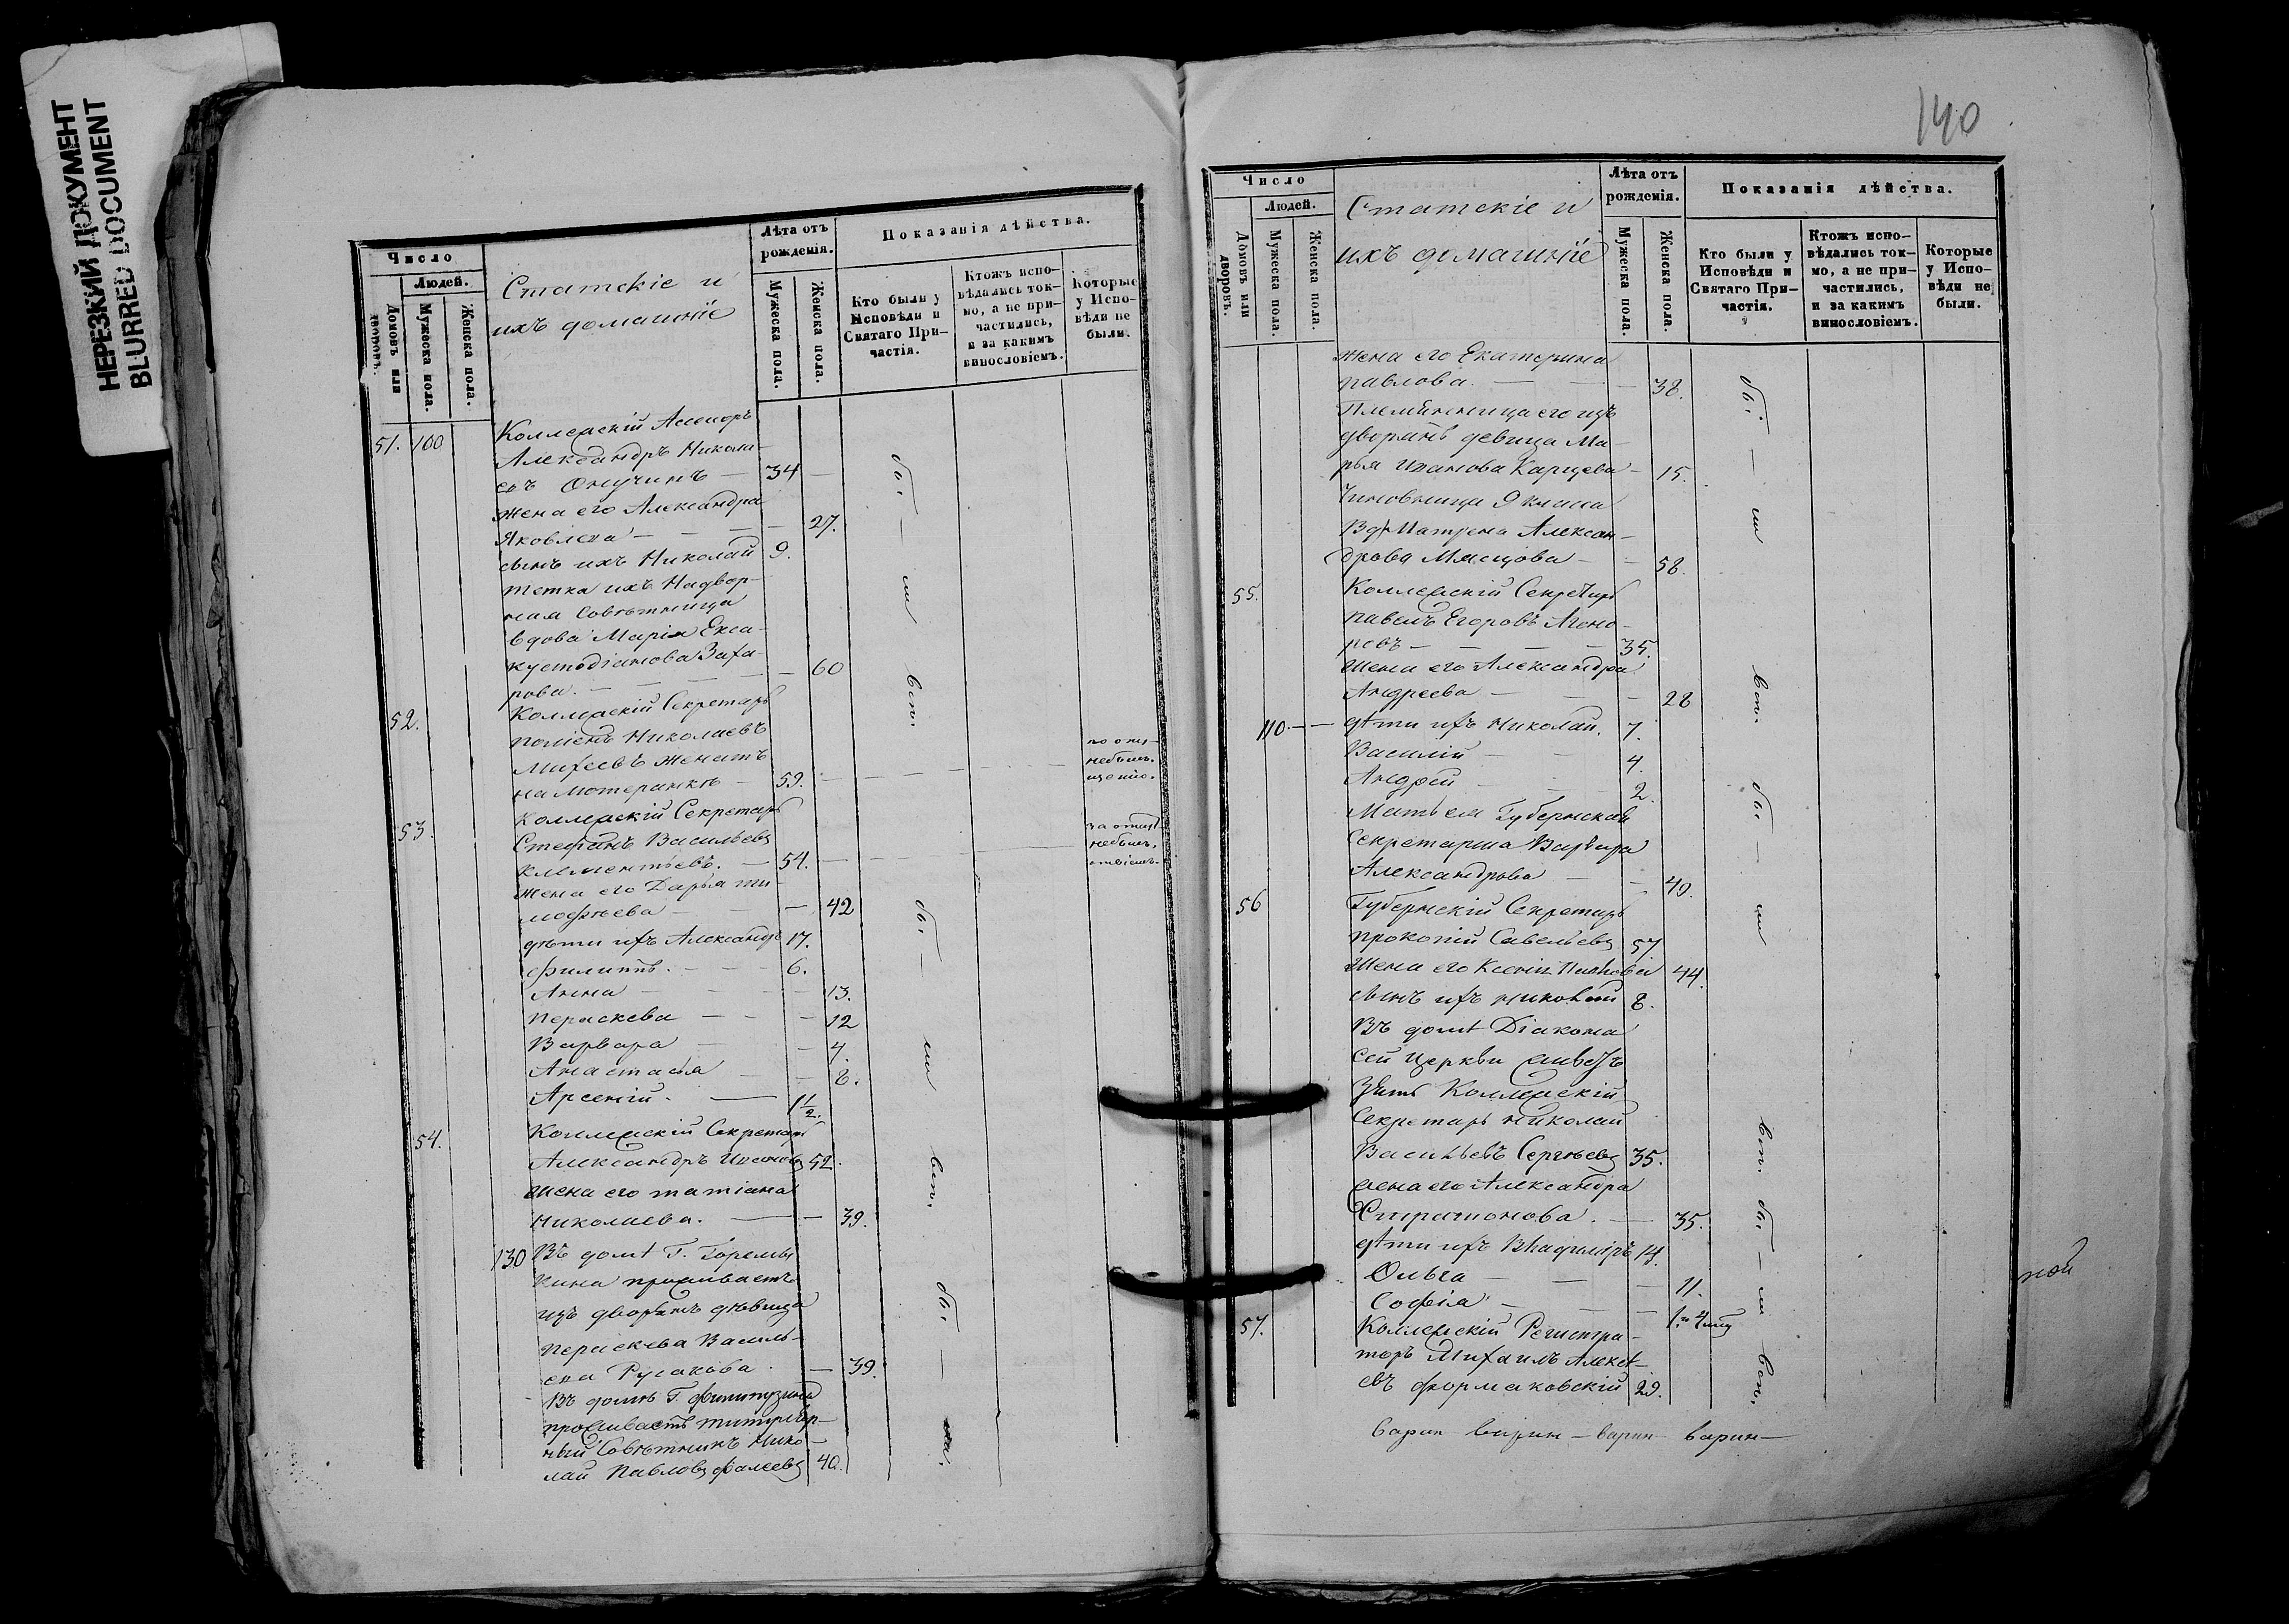 НЕРЕЗКИЙ ДОКУМЕНТ
BLURRED DOCUMENT
Число
Людей.
Домовъ или дворовъ.
Мужеска пола.
Женска пола.
Статскіе и
ихъ домашніе
Лѣта отъ рожденія.
Мужеска пола.
Женска пола.
Показанія дѣйства.
Кто были у Исповѣди и Святаго Причастія.
Ктожъ исповѣдались токмо, а не причастились, и за какимъ винословіемъ.
Которые у Исповѣди не были.
51. 100 Коллежскій Ассесоръ
Александръ Никола-
евъ Онучинъ — 34 —
жена его Александра
Яковлева — — — 27.
сынъ ихъ Николай 9.
тетка ихъ Надвор-
ная Совѣтница
вдова Марія Екса-
кустодіанова Заха-
рова. — — — — 60
52. Коллежскій Секретарь
Николаевъ
Михеевъ женатъ
на Лютеранкѣ — 59. — — — —
небылъ.
53. Коллежскій Секретарь
Стефанъ Васильевъ
Клементьевъ. — 54. — — —
небылъ.
жена его Дарья Ти-
мофѣева — — — 42
дѣти ихъ Александръ 17.
Филиппъ. — — — 6.
Анна — — — 13.
Параскева — — — 12
Варвара — — 7.
Анастасія — — 8.
Арсеній. — 1 1/2.
54. Коллежскій Секретарь
Александръ Ивановъ 52.
жена его Татіана
Николаева. — — 39.
130 Въ домѣ Г. Горемы
кина проживаетъ
изъ дворянъ дѣвица
Параскева Василь-
ева Русакова. — 39.
Въ домѣ Г.
проживаетъ титуляр-
ный Совѣтникъ Нико-
лай Павловъ Фалеевъ 40.
бы — ли
всп.
бы — ли
всп.
бы —
140
Число
Людей.
Домовъ или дворовъ.
Мужеска пола.
Женска пола.
Статскіе и
ихъ домашніе
Лѣта отъ рожденія.
Мужеска пола.
Женска пола.
Показанія дѣйства.
Кто были у Исповѣди и Святаго Причастія.
Ктожъ исповѣдались токмо, а не причастились, и за какимъ винословіемъ.
Которые у Исповѣди не были.
жена его Екатерина
Павлова. — — — 38.
Племянница его изъ
дворянъ девица Ма-
рья Иванова Карцева — 15.
Чиновница 9 класса
Вд. Матрена Алексан-
дрова — — 58.
55. Коллежскій Секретарь
Павелъ Егоровъ
— — — 35.
жена его Александра
Андреева — — — 28
110. — — дѣти ихъ Николай. 7.
Василій — — 4.
Андрей — — 2.
Мать ея Губернская
Секретарша Варвара
Александрова — — 49.
56 Губернскій Секретарь
Прокопій Савельевъ 57
жена его Ксенія 44.
сынъ ихъ Николай 8.
Въ домѣ Діакона
сей церкви живетъ
Зять Коллежскій
Секретарь Николай
Васильевъ Сергѣевъ 35.
жена его Александра
Стратонова. — 35.
дѣти ихъ Владиміръ 14.
Ольга — — — 11.
Софія — — —
57. Коллежскій Регистра-
торъ Михаилъ Алексѣ-
евъ Формаковскій 29.
бы — ли
всп.
бы — ли
всп.
бы — ли
всп.
варин варин — варин варин —
ной